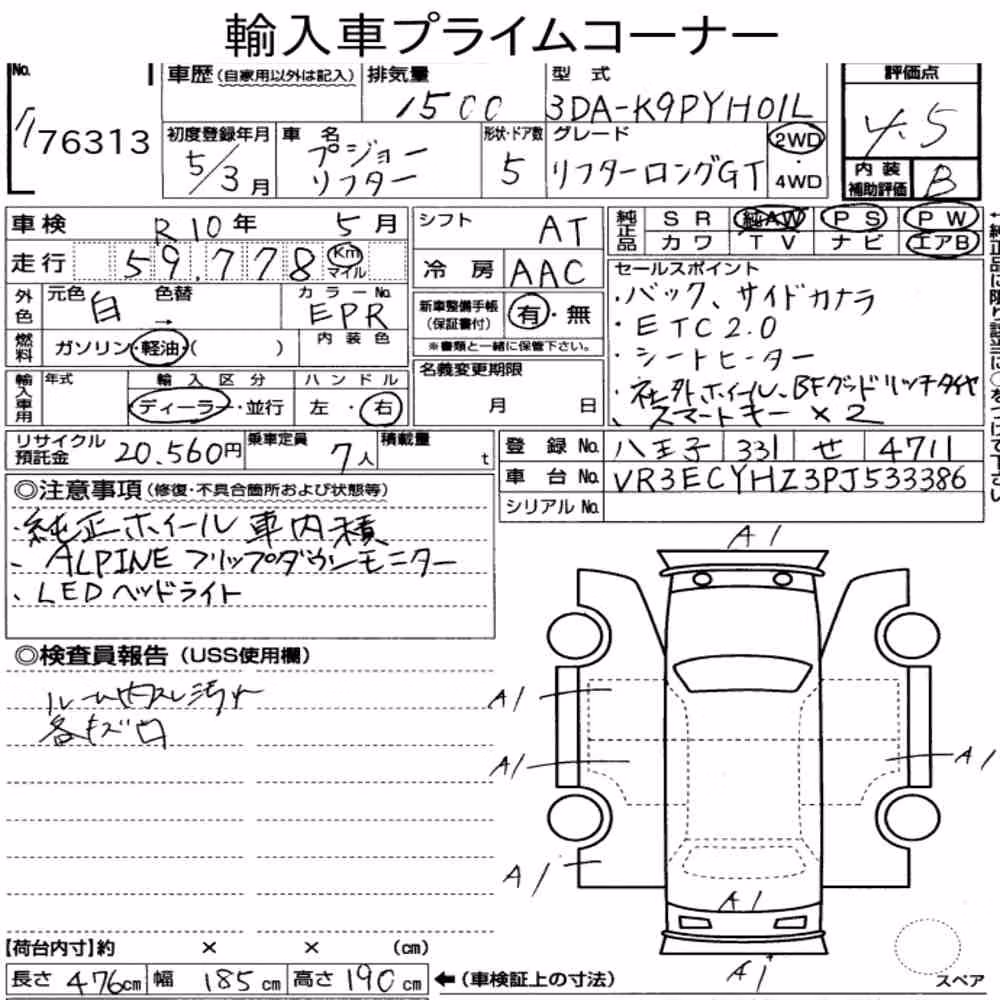 輸入車プライムコーナー
No.
76313
車歴(自家用以外は記入)
排気量
1500
型 式
3DA-K9PYH01L
評価点
4.5
初度登録年月
5/3月
車 名
プジョー
リフター
形状・ドア数
5
グレード
リフターロングGT
2WD
・
4WD
内 装
補助評価
B
車検
R10年 5月
走行
59,778
Km
マイル
シフト
AT
冷 房
AAC
純正品
SR 純AW PS PW
カワ TV ナビ エアB
外色
元色
白
色替
→
カラーNo.
EPR
燃料
ガソリン・軽油・( )
内 装 色
新車整備手帳
(保証書付)
有・無
※書類と一緒に保管下さい。
セールスポイント
・バック、サイドカメラ
・ETC2.0
・シートヒーター
・社外ホイール、BFグッドリッチタイヤ
、スマートキー×2
輸入車用
年式
輸 入 区 分
ディーラー・並行
ハ ン ド ル
左・右
名義変更期限
月 日
リサイクル
預託金
20,560円
乗車定員
7人
積載量
t
登 録 No.
八王子 331 せ 4711
車 台 No.
VR3ECYHZ3PJ533386
シリアルNo.
◎注意事項(修復・不具合箇所および状態等)
・純正ホイール車内積
、ALPINEフリップダウンモニター
、LEDヘッドライト
◎検査員報告(USS使用欄)
各キズ
A1
A1
A1
A1
A1
A1
A1
【荷台内寸】約 × × (cm)
長さ 476cm 幅 185cm 高さ 190cm
←(車検証上の寸法)
スペア